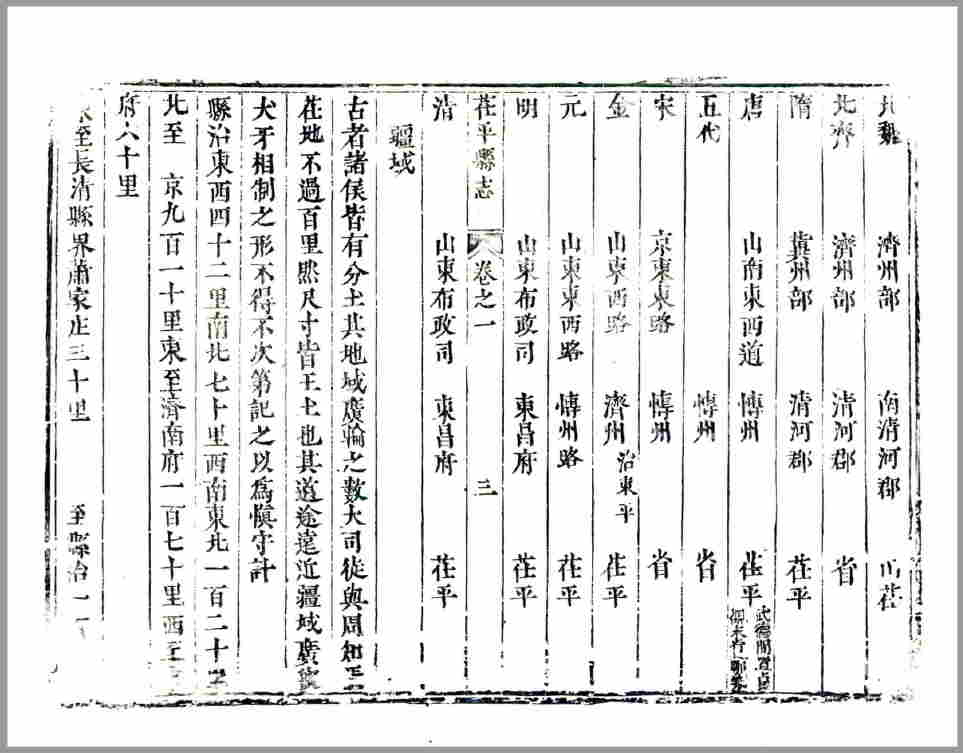 北魏 濟州部 南清河郡 山茌
北齊 濟州部 清河郡 省
隋 冀州部 清河郡 茌平
唐 山南東西道 慱州 茌平 武德間置貞
五代 慱州 省
宋 京東東路 慱州 省
金 山東西路 濟州 治東平 茌平
元 山東東西路 慱州路 茌平
明 山東布政司 東昌府 茌平
茌平縣志 卷之一 三
清 山東布政司 東昌府 茌平
疆域
古者諸侯皆有分土其地域廣輪之數大司徒與周知焉
茌地不過百里然尺寸皆王土也其道途遠近疆域廣狹
犬牙相制之形不得不次第記之以爲愼守計
縣治東西四十二里南北七十里西南東北一百二十里
北至 京九百一十里東至濟南府一百七十里西至
府六十里
東至長清縣界蕭家庄三十里 至縣治一百